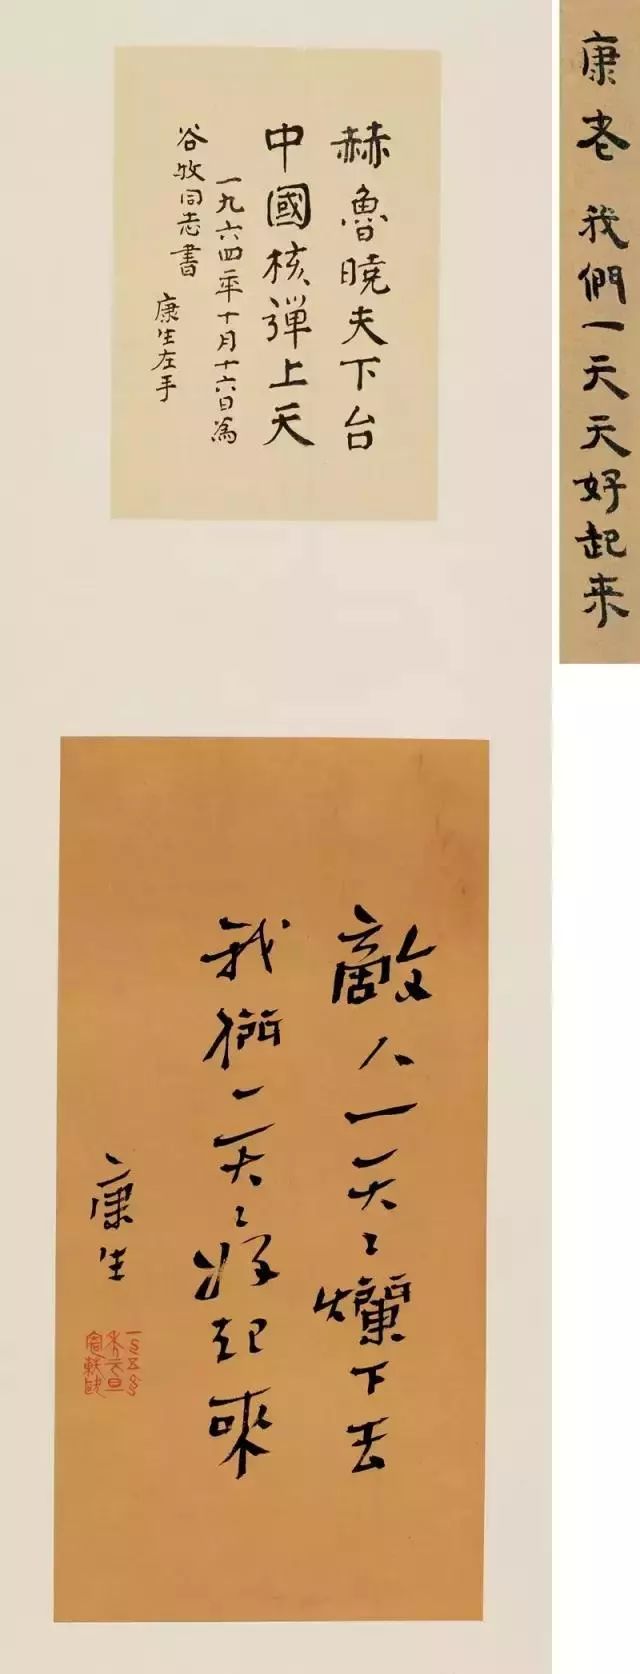 康老 我們一天天好起来
赫魯曉夫下台
中國核彈上天
一九六四年十月十六日為
谷牧同志書
康生左手
敵人一天〻爛下去
我們一天〻好起來
康生